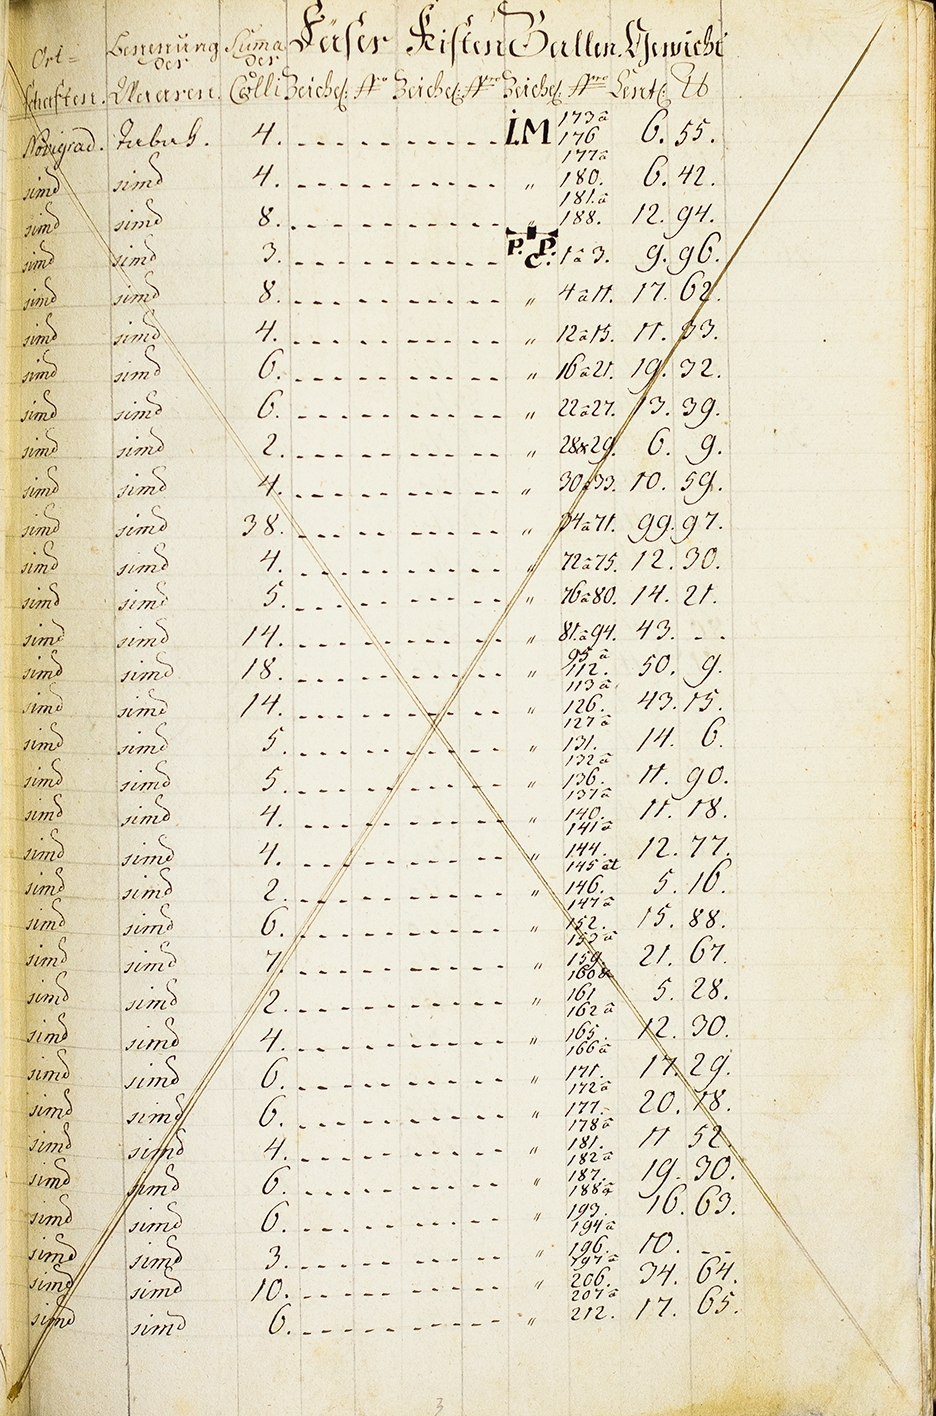 Ort= Benenung Suma Fäser Kisten Ballen. Gewicht
der der
schaften. Waaren. Colli Zeichel: Nro Zeichel: Nro Zeichel: Nro Centl: ℔
Novigrad. Taback. 4. I.M 173 â 176 6. 55.
simd simd 4. " 177 â 180. 6. 42.
simd simd 8. " 181. â 188. 12. 94.
simd simd 3. P. P. C. 1 â 3. 9. 96.
simd simd 8. " 4 â 11. 17. 62.
simd simd 4. " 12 â 15. 11. 33.
simd simd 6. " 16 â 21. 19. 32.
simd simd 6. " 22 â 27. 13. 39.
simd simd 2. " 28 & 29. 6. 9.
simd simd 4. " 30 â 33. 10. 59.
simd simd 38. " 34 â 71. 99. 97.
simd simd 4. " 72 â 75. 12. 30.
simd simd 5. " 76 â 80. 14. 21.
simd simd 14. " 81. â 94. 43. - -
simd simd 18. " 95 â 112. 50. 9.
simd simd 14. " 113 â 126. 43. 15.
simd simd 5. " 127 â 131. 14. 6.
simd simd 5. " 132 â 136. 11. 90.
simd simd 4. " 137 â 140. 11. 18.
simd simd 4. " 141 â 144. 12. 77.
simd simd 2. " 145 et 146. 5. 16.
simd simd 6. " 147 â 152. 15. 88.
simd simd 7. " 153 â 159. 21. 67.
simd simd 2. " 160 & 161 5. 28.
simd simd 4. " 162 â 165. 12. 30.
simd simd 6. " 166 â 171. 17. 29.
simd simd 6. " 172 â 177. 20. 18.
simd simd 4. " 178 â 181. 11 52.
simd simd 6. " 182 â 187. 19. 30.
simd simd 6. " 188 â 193. 16. 63.
simd simd 3. " 194 â 196. 10. - -
simd simd 10. " 197 â 206. 34. 64.
simd simd 6. " 207 â 212. 17. 65.
3